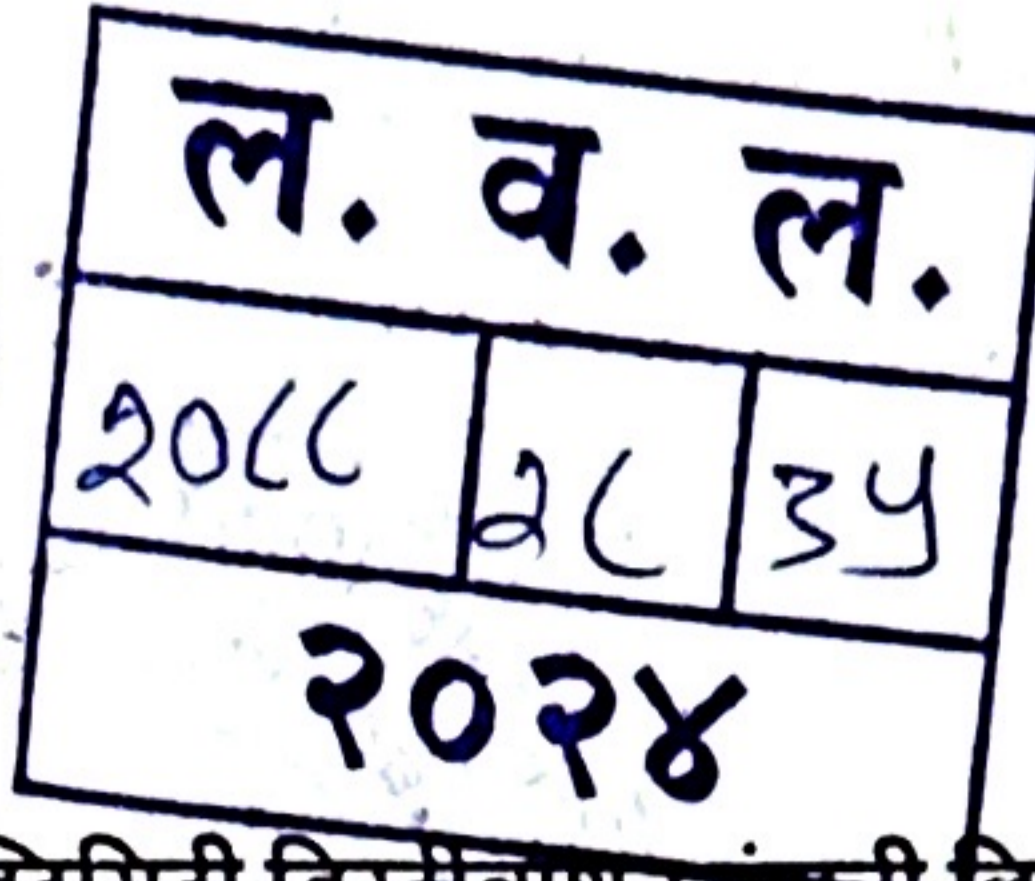 ल. व. ल.
२०८८ २८ ३५
२०२४